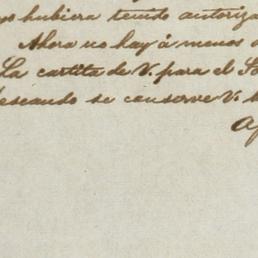 hubiera tenido autoriza
Ahora no hay á menos
La cartita de V. para el
deseando se conserve V.